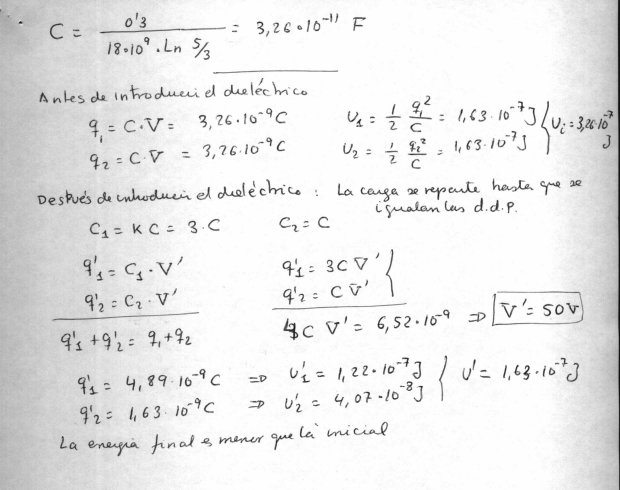 C = 0'3 / 18·10⁹·Ln 5/3 = 3,26·10⁻¹¹ F
Antes de introducir el dieléctrico
q₁ = C·V = 3,26·10⁻⁹C U₁ = 1/2 q₁²/C = 1,63·10⁻⁷J } Uᵢ = 3,26·10⁻⁷ J
q₂ = C·V = 3,26·10⁻⁹C U₂ = 1/2 q₂²/C = 1,63·10⁻⁷J
Después de introducir el dieléctrico : La carga se reparte hasta que se
igualan las d.d.p.
C₁ = K C = 3·C C₂ = C
q'₁ = C₁·V' q'₁ = 3C V' }
q'₂ = C₂·V' q'₂ = C V'
q'₁ + q'₂ = q₁ + q₂ 4C V' = 6,52·10⁻⁹ ⇒ V' = 50V
q'₁ = 4,89·10⁻⁹C ⇒ U'₁ = 1,22·10⁻⁷J } U' = 1,63·10⁻⁷J
q'₂ = 1,63·10⁻⁹C ⇒ U'₂ = 4,07·10⁻⁸J
La energía final es menor que la inicial